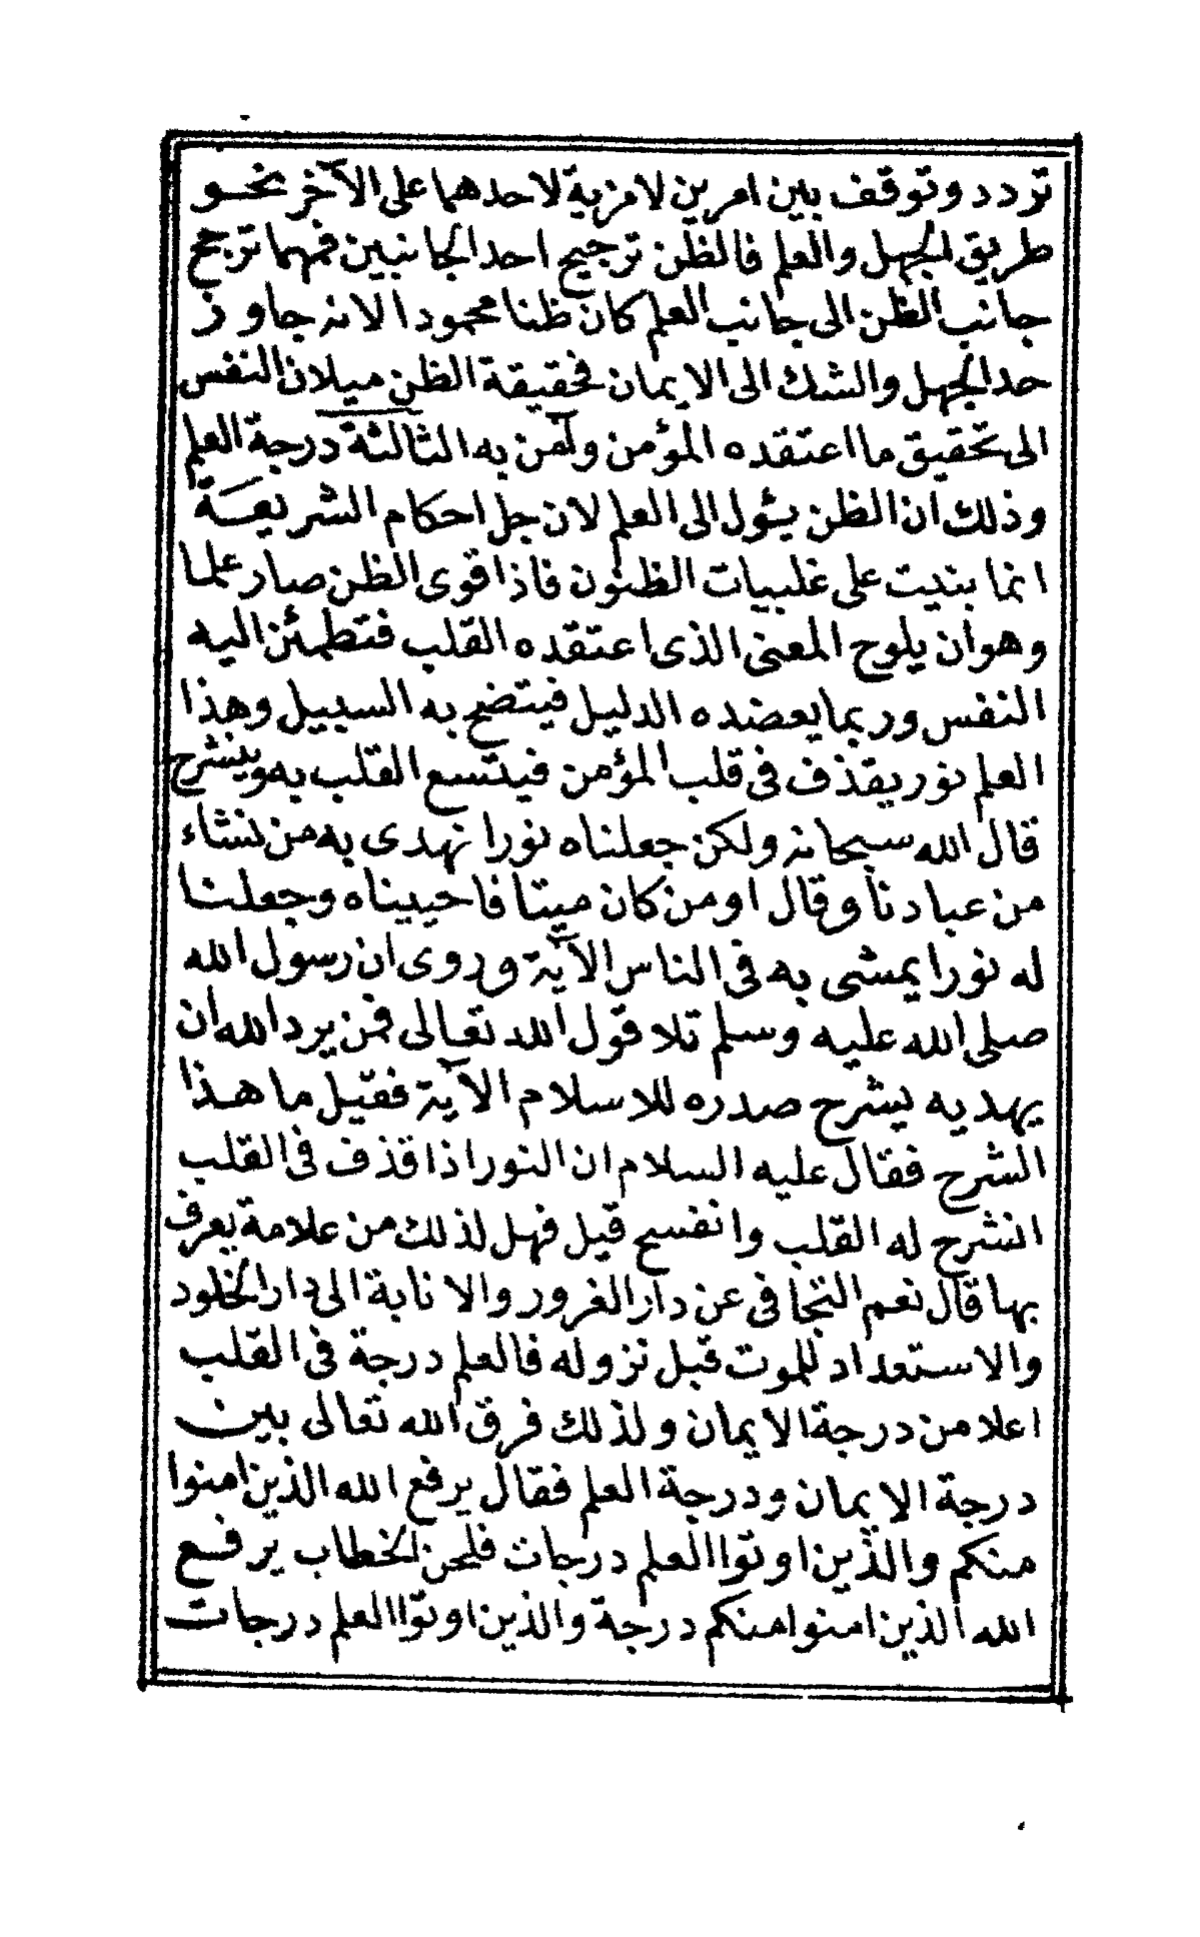 تردد وتوقف بين امرين لا مزية لاحدهما على الآخر نحو
طريق الجهل والعلم فالظن ترجيح احد الجانبين فهما ترجح
جانب الظن الى جانب العلم كان ظنا محمودا لانه جاوز
حد الجهل والشك الى الايمان فحقيقة الظن ميلان النفس
الى تحقيق ما اعتقده المؤمن وآمن به الثالثة درجة العلم
وذلك ان الظن يئول الى العلم لان جل احكام الشريعة
انما بنيت على غلبيات الظنون فاذا قوى الظن صار علما
وهو ان يلوح المعنى الذى اعتقده القلب فتطمئن اليه
النفس وربما يعضده الدليل فيتضح به السبيل وهذا
العلم نور يقذف فى قلب المؤمن فيتسع القلب به وينشرح
قال الله سبحانه ولكن جعلناه نورا نهدى به من نشاء
من عبادنا وقال اومن كان ميتا فاحييناه وجعلنا
له نورا يمشى به فى الناس الآية وروى ان رسول الله
صلى الله عليه وسلم تلا قول الله تعالى فمن يرد الله ان
يهديه يشرح صدره للاسلام الآية فقيل ما هذا
الشرح فقال عليه السلام ان النور اذا قذف فى القلب
انشرح له القلب وانفسح قيل فهل لذلك من علامة يعرف
بها قال نعم التجافى عن دار الغرور والانابة الى دار الخلود
والاستعداد للموت قبل نزوله فالعلم درجة فى القلب
اعلا من درجة الايمان ولذلك فرق الله تعالى بين
درجة الايمان ودرجة العلم فقال يرفع الله الذين امنوا
منكم والذين اوتوا العلم درجات فلحن الخطاب يرفع
الله الذين امنوا منكم درجة والذين اوتوا العلم درجات